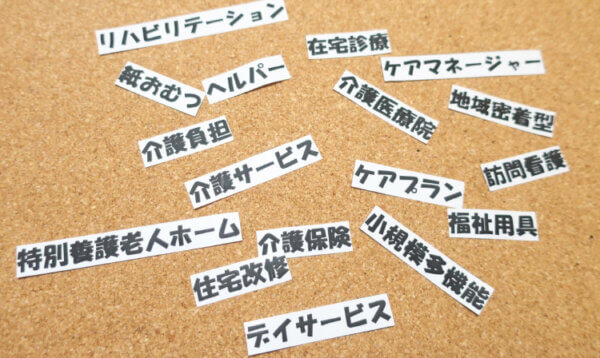 リハビリテーション
在宅診療
ケアマネージャー
紙おむつ
ヘルパー
介護医療院
地域密着型
介護負担
介護サービス
ケアプラン
訪問看護
特別養護老人ホーム
介護保険
小規模多機能
福祉用具
住宅改修
デイサービス